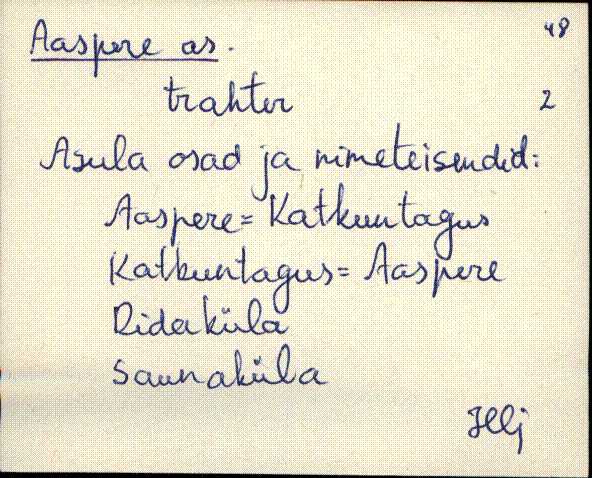 Aaspere as. 48
trahter 2
Asula osad ja nimeteisendid:
Aaspere = Katkuntagus
Katkuntagus = Aaspere
Ridaküla
Saunaküla
Hlj